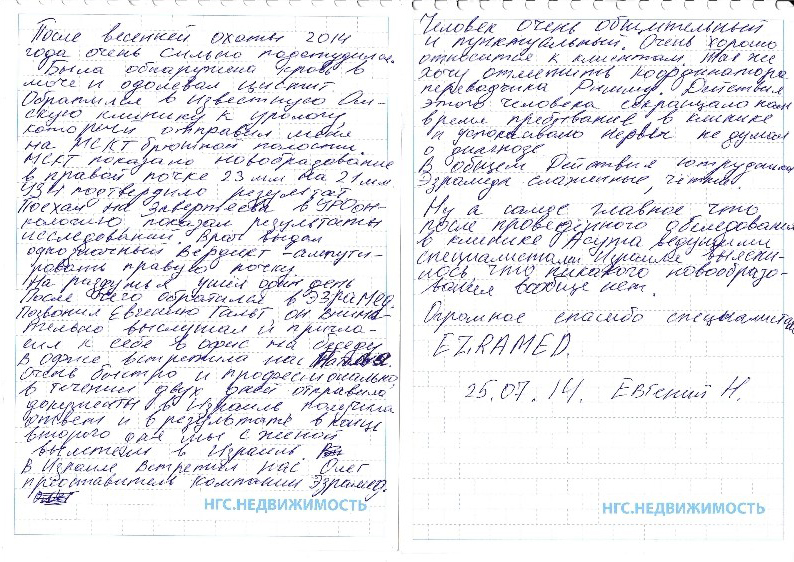 После весенней охоты 2014
года очень сильно подстудился.
Была обнаружена кровь в
моче и одолевал цистит
Обратился в известную Ом-
скую клинику к урологу,
который отправил меня
на МСКТ брюшной полости.
МСКТ показало новобразование
в правой почке 23 мм на 21 мм
УЗИ подтвердило результат.
Поехал на Завертяева в
кологию показал результаты
исследований. Врач выдал
однозначный Вердикт - ампути-
ровать правую почку
На раздумья ушёл один день
После чего обратился в ЭзраМед.
Позвонил Евгению Гальт он внима-
тельно выслушал и пригла-
сил к себе в офис на беседу
В офисе встретила нас
Очень быстро и професионально
в течении двух дней отправили
документы в Израиль получили
ответ и в результате в конце
второго дня мы с женой
вылетели в Израиль
В Израиле Встретил нас Олег
представитель компании Эзрамед.
НГС.НЕДВИЖИМОСТЬ
Человек очень общительный
и пунктуальный. Очень хорошо
относится к клиентам. Так же
хочу отметить координатора
переводчика Римму. Действия
этого человека сокращало нам
время пребывания в клинике
и успокаивало нервы не думая
о диагнозе
В общем Действия сотрудники
Эзрамеда слаженные, чёткие.
Ну а самое главное что
после проведённого обследования
в клинике Асута ведущими
специалистами Израиля выясни-
лось что никакого новообразо-
вания вообще нет.
Огромное спасибо специалистам
EZRAMED.
25.07.14. Евгений Н.
НГС.НЕДВИЖИМОСТЬ